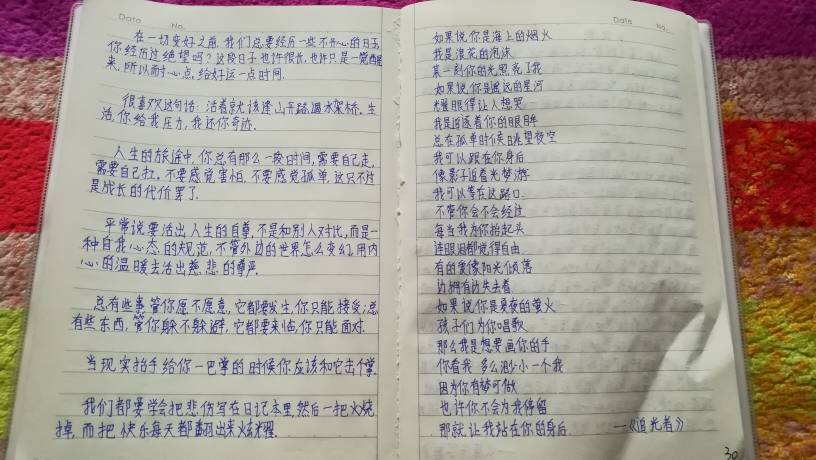 Date No.
在一切变好之前,我们总要经历一些不开心的日子,
你经历过绝望吗?这段日子也许很长,也许只是一觉醒
来,所以耐心点,给好运一点时间.
很喜欢这句话:活着就该逢山开路,遇水架桥.生
活,你给我压力,我还你奇迹.
人生的旅途中,你总有那么一段时间,需要自己走,
需要自己扛.不要感觉害怕,不要感觉孤单,这只不过
是成长的代价罢了.
平常说要活出人生的自尊,不是和别人对比,而是一
种自我心态的规范,不管外边的世界怎么变幻,用内
心的温暖去活出慈悲的尊严.
总有些事,管你愿不愿意,它都要发生,你只能接受;总
有些东西,管你躲不躲避,它都要来临,你只能面对.
当现实抬手给你一巴掌的时候你应该和它击个掌.
我们都要学会把悲伤写在日记本里,然后一把火烧
掉,而把快乐每天都翻出来炫耀.
Date No.
如果说你是海上的烟火
我是浪花的泡沫
某一刻你的光照亮了我
如果说你是遥远的星河
光耀眼得让人想哭
我是追逐着你的眼眸
总在孤单时候眺望夜空
我可以跟在你身后
像影子追着光梦游
我可以等在这路口
不管你会不会经过
每当我为你抬起头
连眼泪都觉得自由
有的爱像阳光倾落
边拥有边失去着
如果说你是夏夜的萤火
孩子们为你唱歌
那么我是想要画你的手
你看我多么渺小一个我
因为你有梦可做
也许你不会为我停留
那就让我站在你的身后 —《追光者》
30